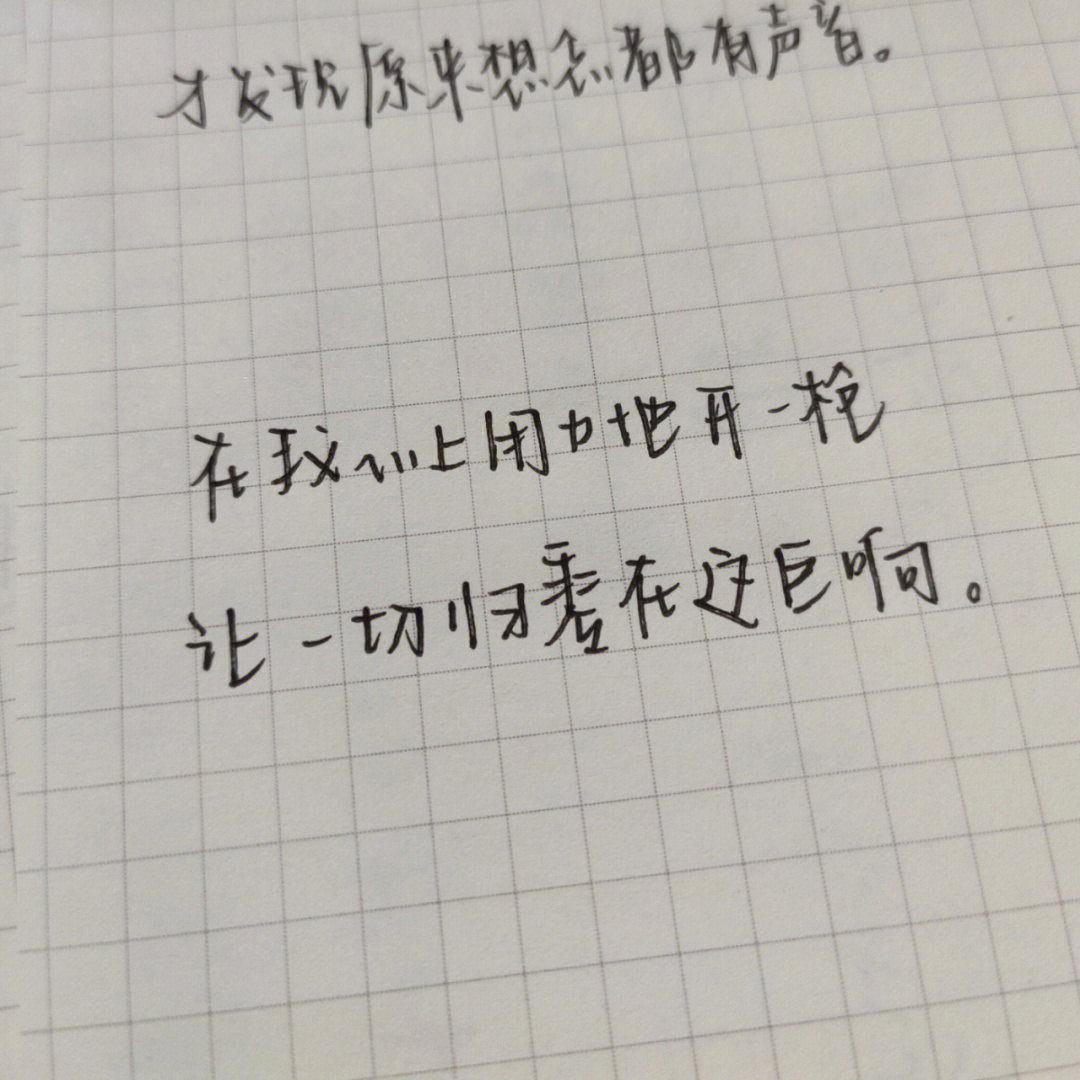 才发现原来想念都有声音。
在我心上用力地开一枪
让一切归零在这巨响。